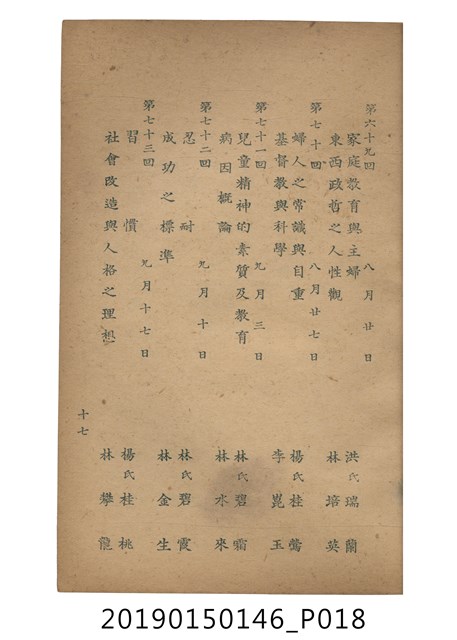 第六十九回　八月廿日
家庭教育與主婦　洪氏瑞蘭
東西政哲之人性觀　林培英
第七十回　八月廿七日
婦人之常識與自重　楊氏桂鶯
基督教與科學　李崑玉
第七十一回　九月三日
兒童精神的素質及教育　林氏碧霜
病因概論　林水來
第七十二回　九月十日
忍耐　林氏碧霞
成功之標準　林金生
第七十三回　九月十七日
習慣　楊氏桂桃
社會改造與人格之理想　林攀龍
十七
20190150146_P018